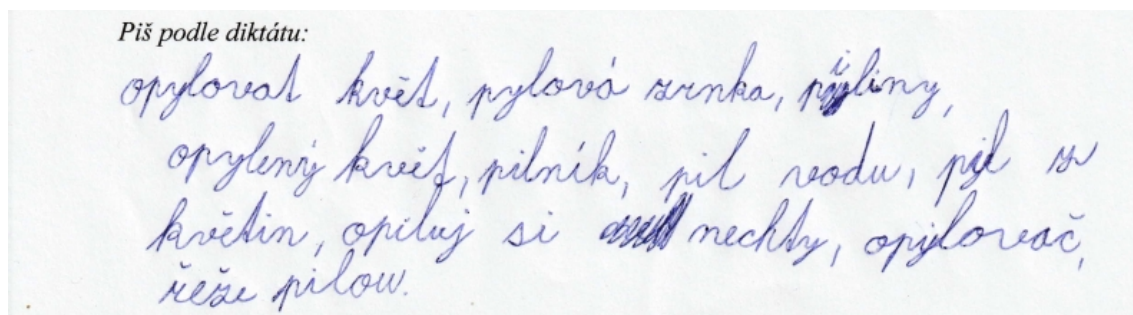 Piš podle diktátu:
opylovat květ, pylová zrnka, piliny,
opylený květ, pilník, pil vodu, pyl z
květin, opiluj si nechty, opylovač,
řeže pilou.